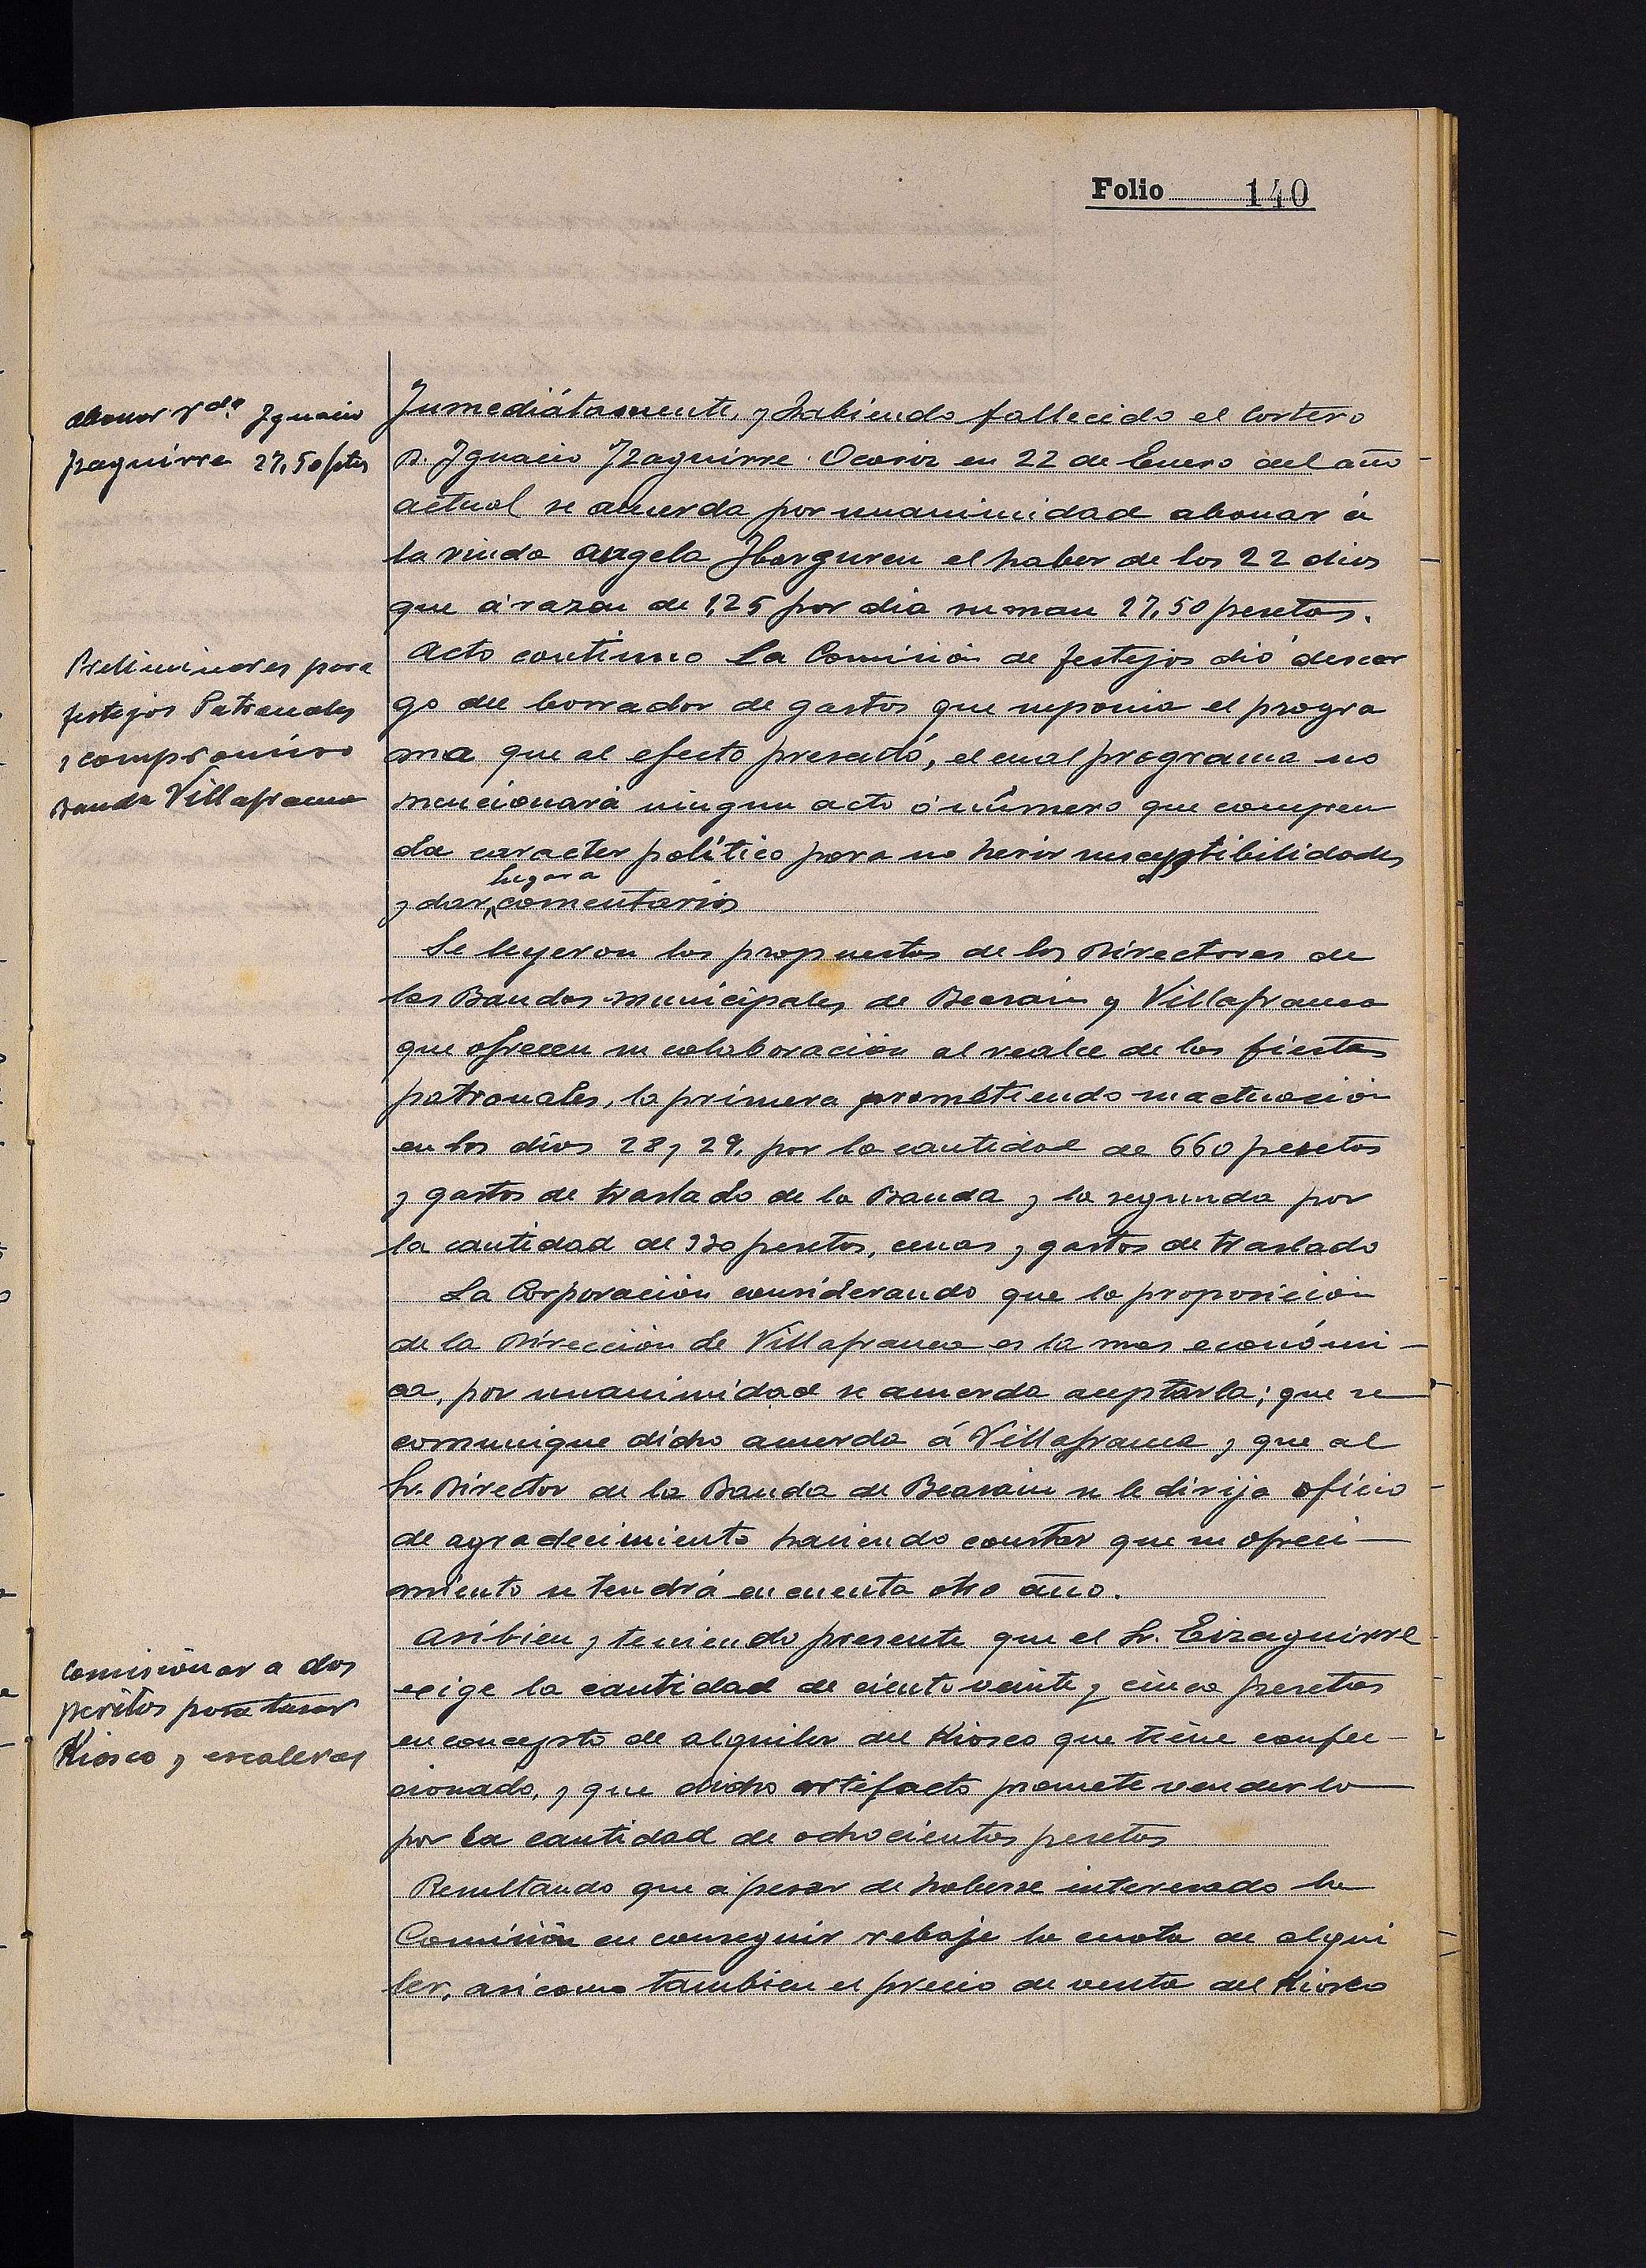 Folio 140
abonar Vda. Ignacio
Izaguirre 27,50 ptas
Inmediátamente, y habiendo fallecido el Cartero
D. Ignacio Izaguirre Ocariz en 22 de Enero del año
actual se acuerda por unanimidad abonar á
la viuda Angela Ibarguren el haber de los 22 dias
que á razon de 1,25 por dia suman 27,50 pesetas.
Preliminares para
festejos Patronales
y compromiso
Banda Villafranca
Acto continuo La Comisión de festejos dió descar
go del borrador de gastos que suponia el progra
ma que al efecto presentó, el cual programa no
mencionará ningun acto ó número que compren
da caracter político para no herir susceptibilidades
y dar lugar a comentarios
Se leyeron las propuestas de los Directores de
las Bandas municipales de Beasain y Villafranca
que ofrecen su colaboración al realce de las fiestas
patronales, la primera prometiendo su actuación
en los días 28 y 29, por la cantidad de 660 pesetas
y gastos de traslado de la Banda y la segunda por
la cantidad de pesetas, cenas y gastos de traslado
La Corporación considerando que la proposicion
de la Dirección de Villafranca es la mas económi-
ca, por unanimidad se acuerda aceptarla; que se
comunique dicho acuerdo á Villafranca y que al
Sr. Director de la Banda de Beasain se le dirija oficio
de agradecimiento haciendo constar que su ofreci-
miento se tendrá en cuenta otro año.
Comisionar a dos
peritos para tasar
Kiosco y escaleras
Asíbien y teniendo presente que el Sr. Eizaguirre
exige la cantidad de ciento veinte y cinco pesetas
en concepto de alquiler del Kiosco que tiene confec-
cionado, y que dicho artefacto promete venderlo
por la cantidad de ochocientas pesetas
Resultando que á pesar de haberse interesado la
Comisión en conseguir rebaje la cuota de alqui
ler, asi como tambien el precio de venta del Kiosco